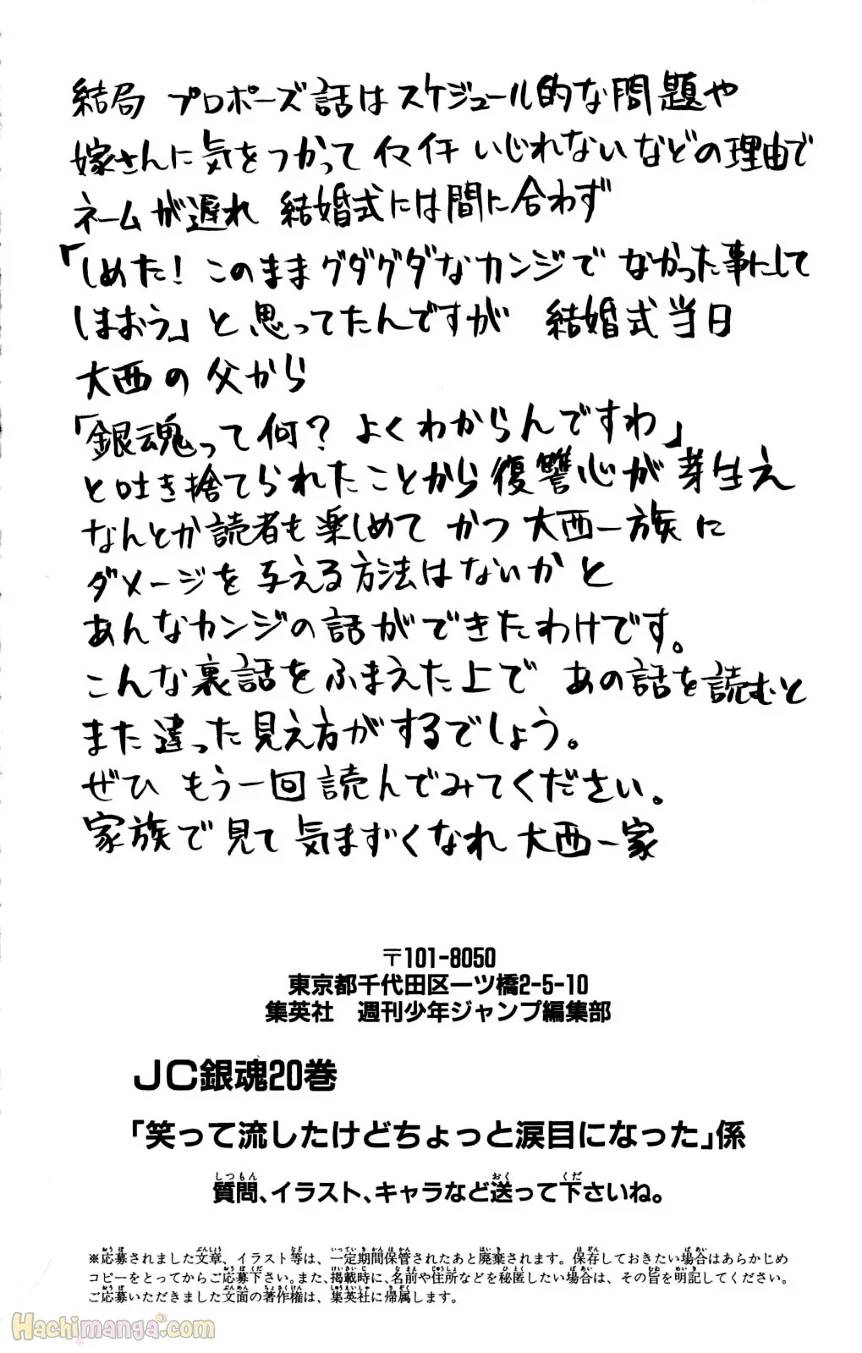 結局 プロポーズ話はスケジュール的な問題や
嫁さんに気をつかって イマイチ いじれないなどの理由で
ネームが遅れ 結婚式には間に合わず
「しめた！このままグダグダなカンジで なかった事にして
しまおう」と思ってたんですが 結婚式当日
大西の父から
「銀魂って何？よくわからんですわ」
と吐き捨てられたことから復讐心が芽生え
なんとか読者も楽しめて かつ 大西一族に
ダメージを与える方法はないかと
あんなカンジの話ができたわけです。
こんな裏話をふまえた上で あの話を読むと
また違った見え方がするでしょう。
ぜひ もう一回読んでみてください。
家族で見て気まずくなれ 大西一家
〒101-8050
東京都千代田区一ツ橋2-5-10
集英社 週刊少年ジャンプ編集部
JC銀魂20巻
「笑って流したけどちょっと涙目になった」係
質問、イラスト、キャラなど送って下さいね。
※応募されました文章、イラスト等は、一定期間保管されたあと廃棄されます。保存しておきたい場合はあらかじめ
コピーをとってからご応募下さい。また、掲載時に、名前や住所などを秘匿したい場合は、その旨を明記してください。
ご応募いただきました文面の著作権は、集英社に帰属します。
Hachimanga.com